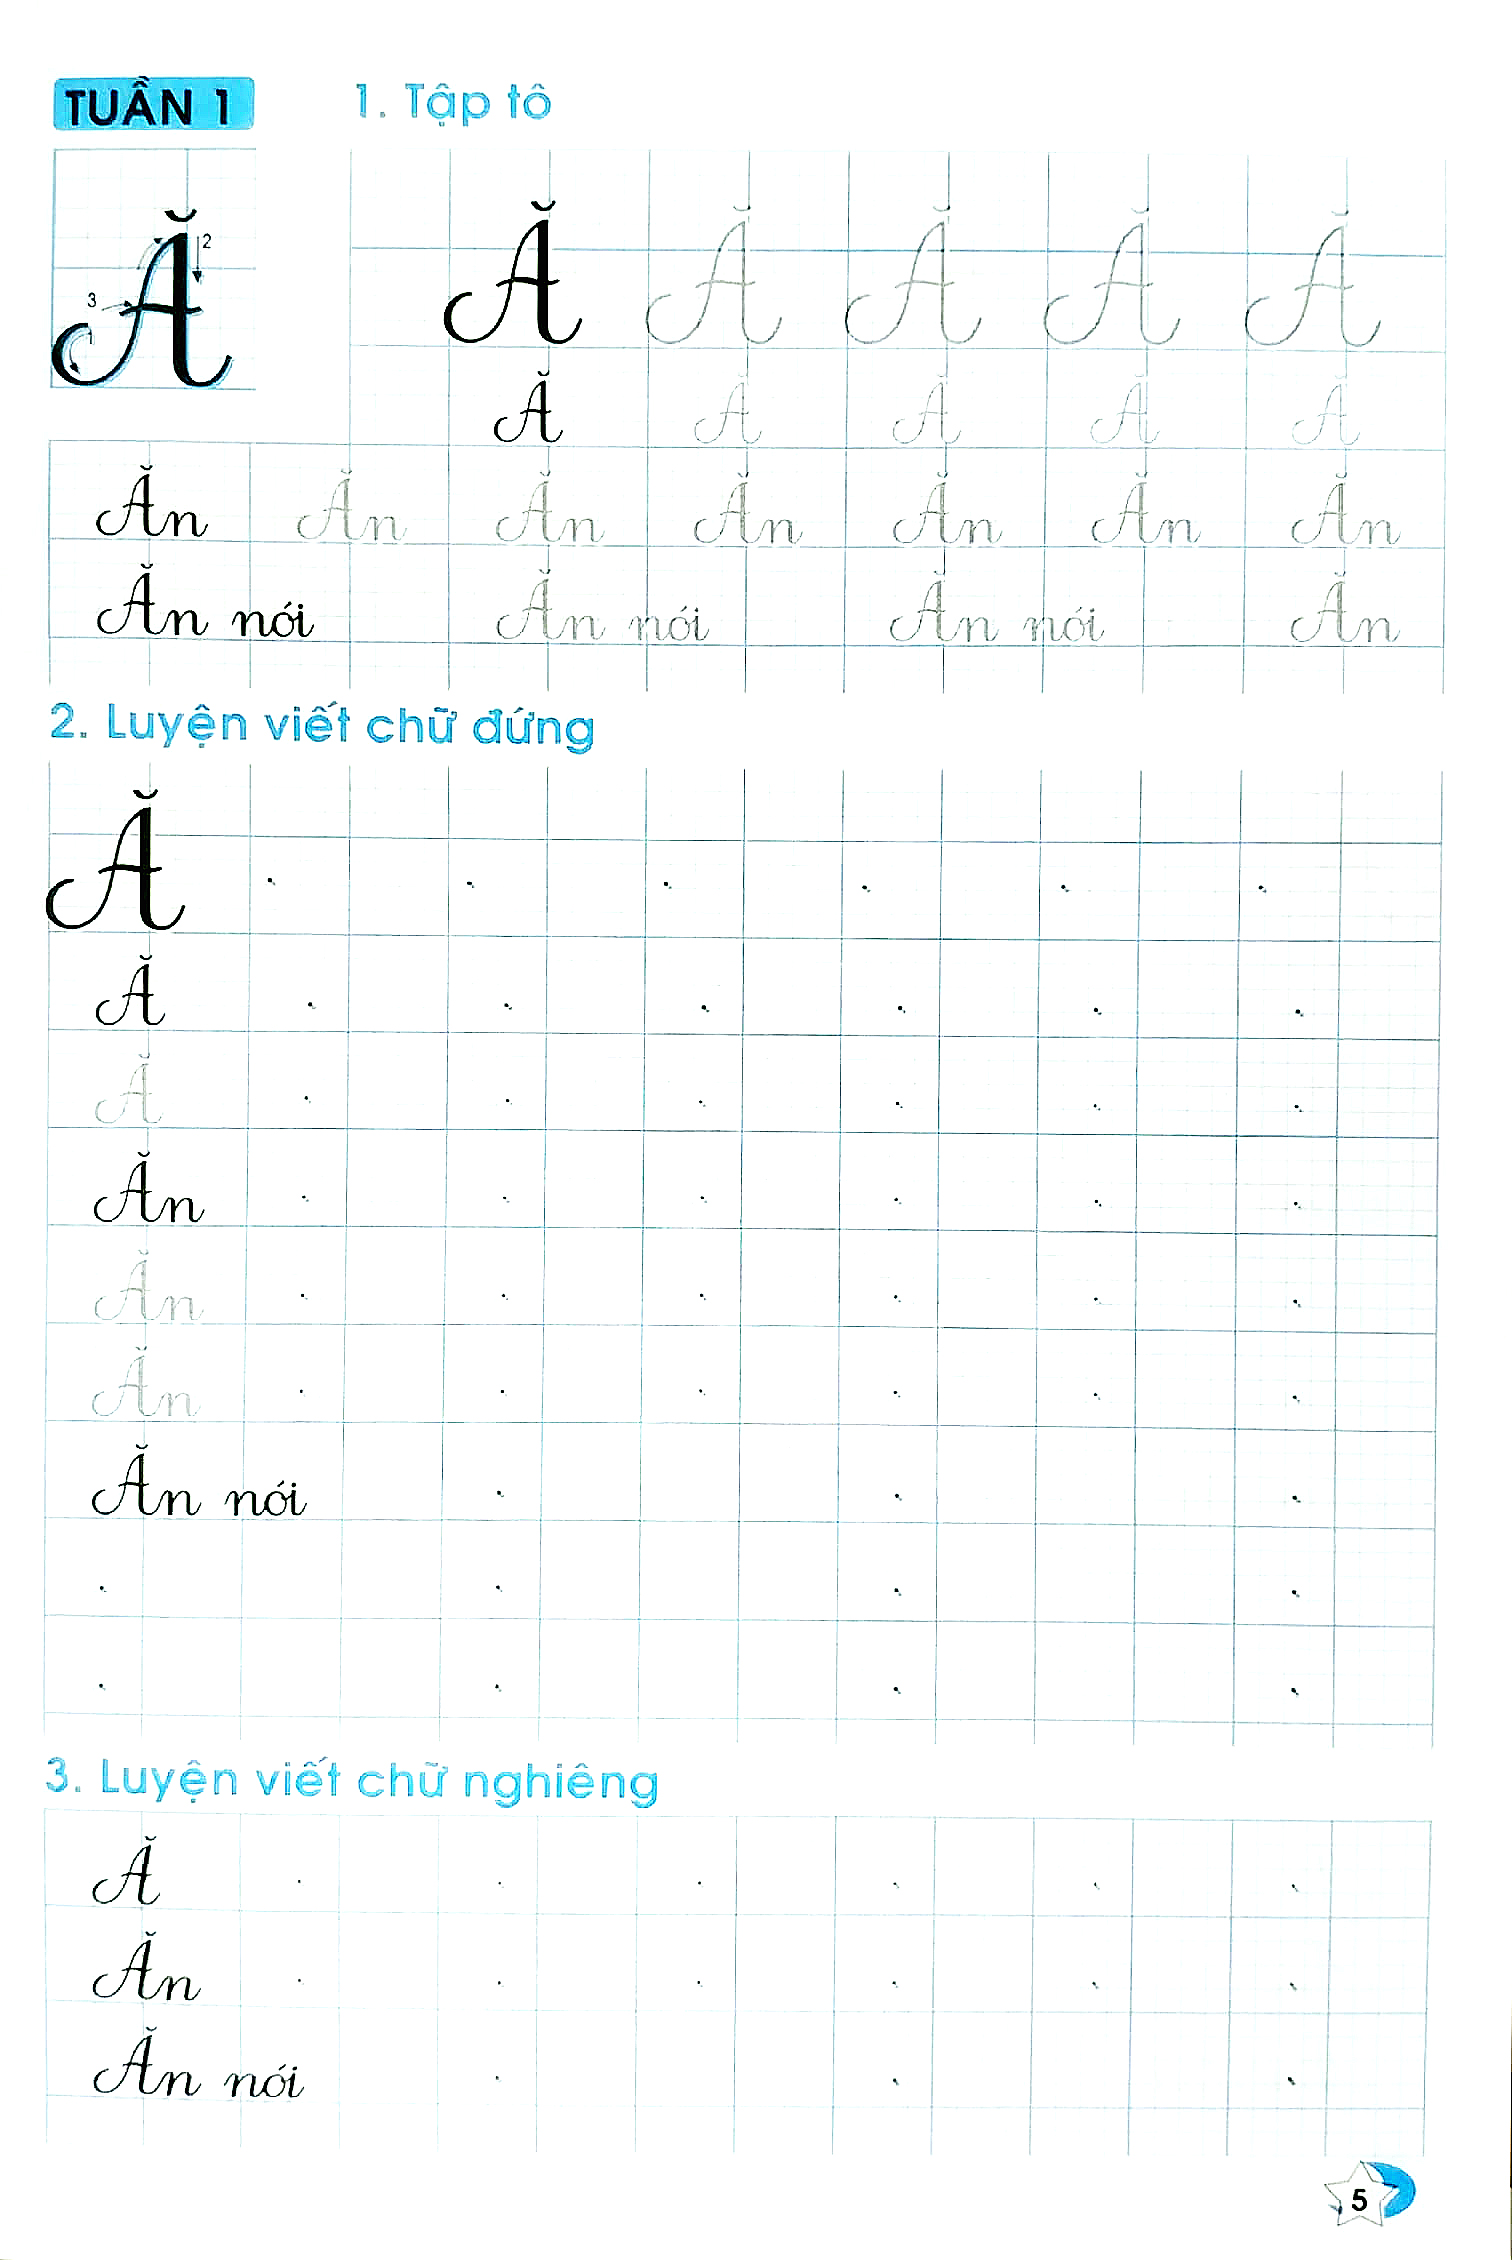 TUẦN 1
1. Tập tô
Ă 1 2 3
Ă Ă Ă Ă Ă
Ă Ă Ă Ă Ă
Ăn Ăn Ăn Ăn Ăn Ăn Ăn
Ăn nói Ăn nói Ăn nói Ăn
2. Luyện viết chữ đứng
Ă
Ă
Ă
Ăn
Ăn
Ăn
Ăn nói
3. Luyện viết chữ nghiêng
Ă
Ăn
Ăn nói
5